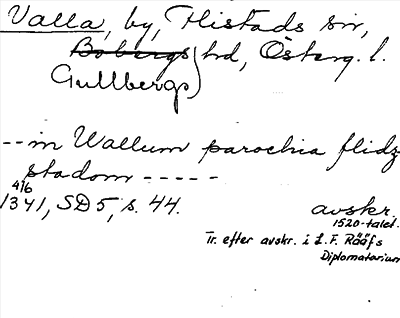 Valla, by, Flistads sn,
Bobergs hd, Österg. l.
Gullbergs
--in Wallum parochia flidz
stadom -----
4/6
1341, SD 5, s. 44.
avskr.
1520-talet.
Tr. efter avskr. i L. F. Rääfs
Diplomatarium